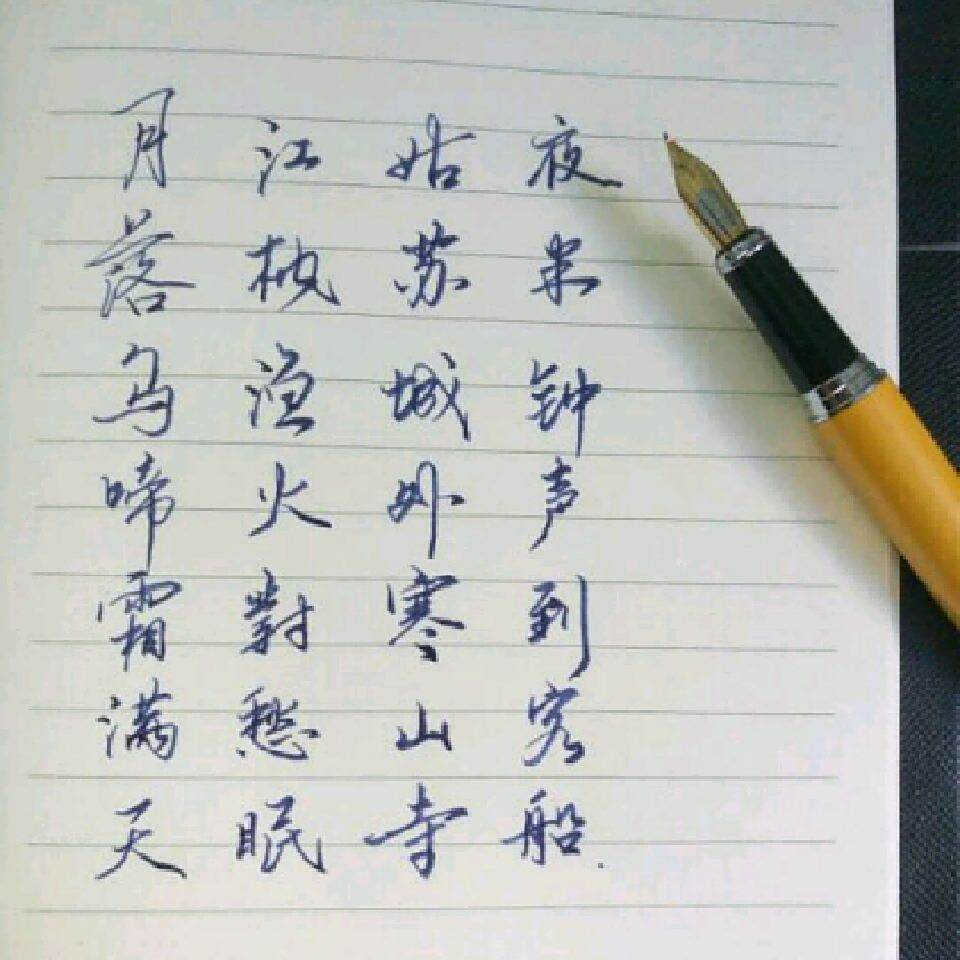 月落乌啼霜满天
江枫渔火對愁眠
姑苏城外寒山寺
夜半钟声到客船.